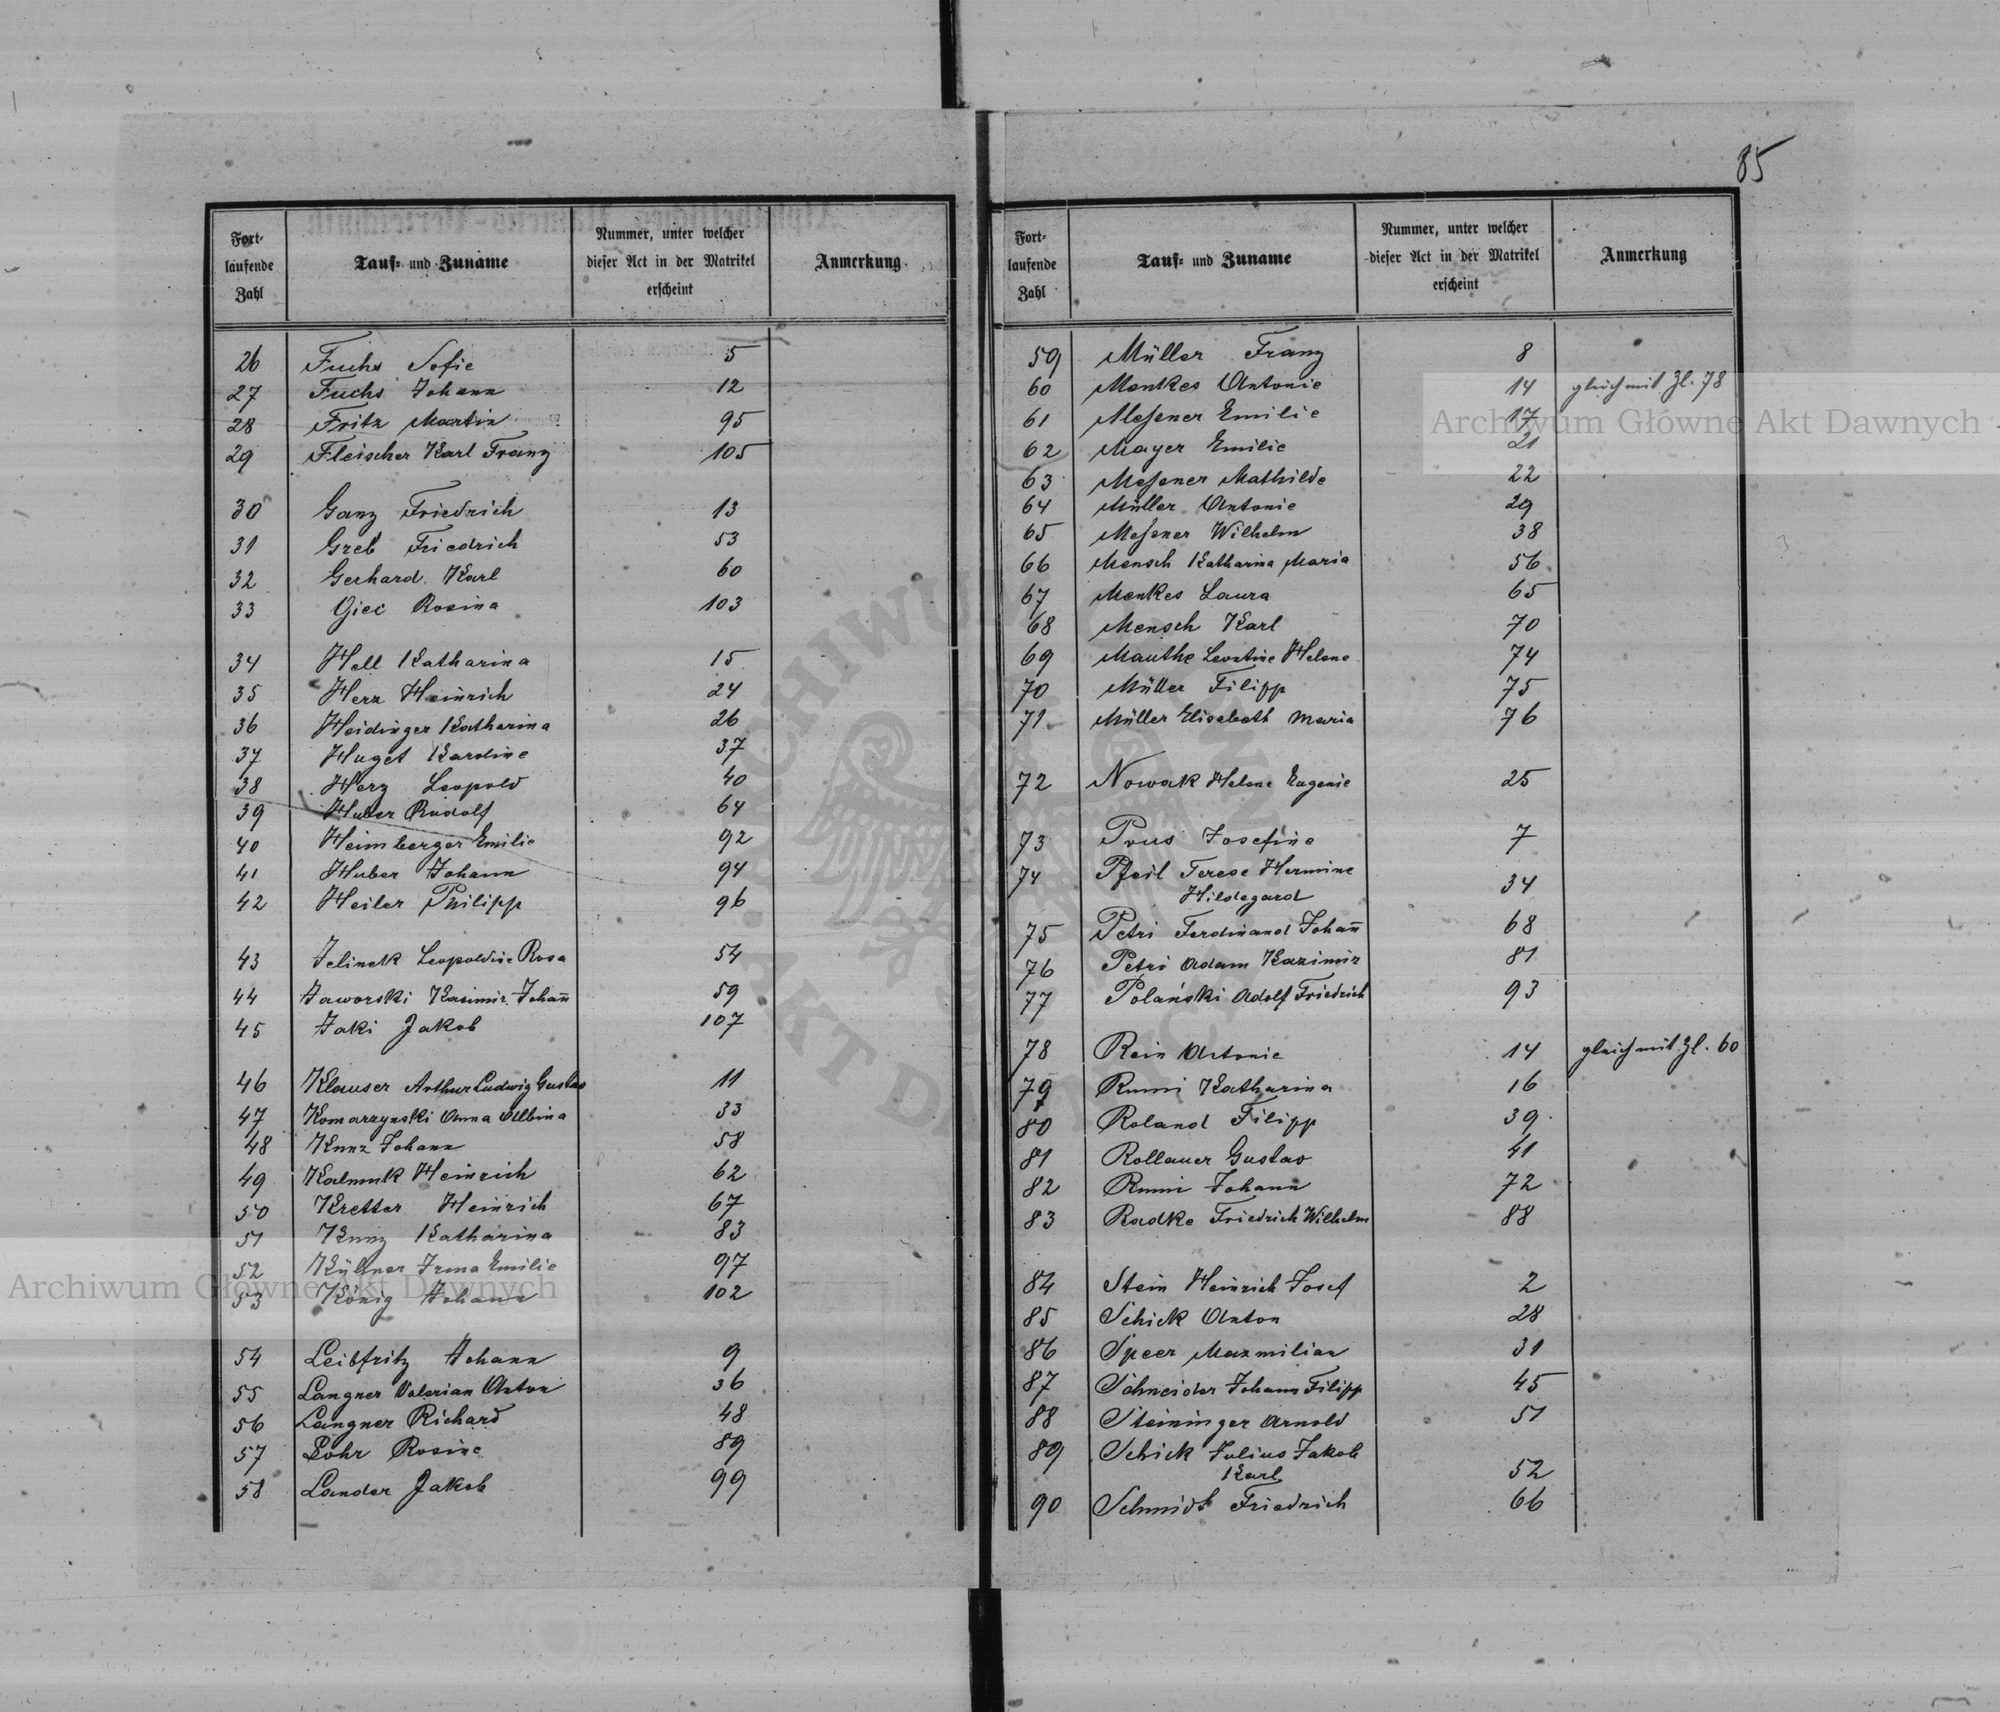 85
Fort-
laufende
Zahl
Tauf- und Zuname
Nummer, unter welcher
dieser Act in der Matrikel
erscheint
Anmerkung
26 Fuchs Sofie 5
27 Fuchs Johann 12
28 Fritz Martin 95
29 Fleischer Karl Franz 105
30 Ganz Friedrich 13
31 Greb Friedrich 53
32 Gerhard Karl 60
33 Giec Rosina 103
34 Hell Katharina 15
35 Herz Heinrich 24
36 Heidinger Katharina 26
37 Huget Karoline 37
38 Herz Leopold 40
39 Huber Rudolf 64
40 Heimberger Emilie 92
41 Huber Johann 94
42 Heiler Philipp 96
43 Jelinek Leopoldine Rosa 54
44 Jaworski Kasimir Johañ 59
45 Jaki Jakob 107
46 Klauser Arthur Ludwig Gustav 11
47 Komarzynski Anna Albina 33
48 Kunz Johann 58
49 Kalmuk Heinrich 62
50 Kretter Heinrich 67
51 Kunz Katharina 83
52 Kühner Irma Emilie 97
53 König Johann 102
54 Leibfritz Johann 9
55 Langner Valerian Anton 36
56 Langner Richard 48
57 Lohr Rosine 89
58 Lander Jakob 99
Fort-
laufende
Zahl
Tauf- und Zuname
Nummer, unter welcher
dieser Act in der Matrikel
erscheint
Anmerkung
59 Müller Franz 8
60 Menkes Antonie 14 gleich mit Zl. 78
61 Meſsner Emilie 17
62 Mayer Emilie 21
63 Meſsner Mathilde 22
64 Müller Antonie 29
65 Meſsner Wilhelm 38
66 Mensch Katharina Maria 56
67 Menkes Laura 65
68 Mensch Karl 70
69 Mauthe Leontine Helene 74
70 Müller Filipp 75
71 Müller Elisabeth Maria 76
72 Nowak Helene Eugenie 25
73 Prus Josefine 7
74 Pfeil Terese Hermine
Hildegard 34
75 Petri Ferdinand Johañ 68
76 Petri Adam Kazimir 81
77 Polański Adolf Friedrich 93
78 Rein Antonie 14 gleich mit Zl. 60
79 Rumi Katharina 16
80 Roland Filipp 39
81 Rollauer Gustav 41
82 Rumi Johann 72
83 Radke Friedrich Wilhelm 88
84 Stein Heinrich Josef 2
85 Schick Anton 28
86 Speer Maxmilian 31
87 Schneider Johann Filipp 45
88 Steininger Arnold 51
89 Schick Julius Jakob
Karl 52
90 Schmidt Friedrich 66
Archiwum Główne Akt Dawnych
Archiwum Główne Akt Dawnych